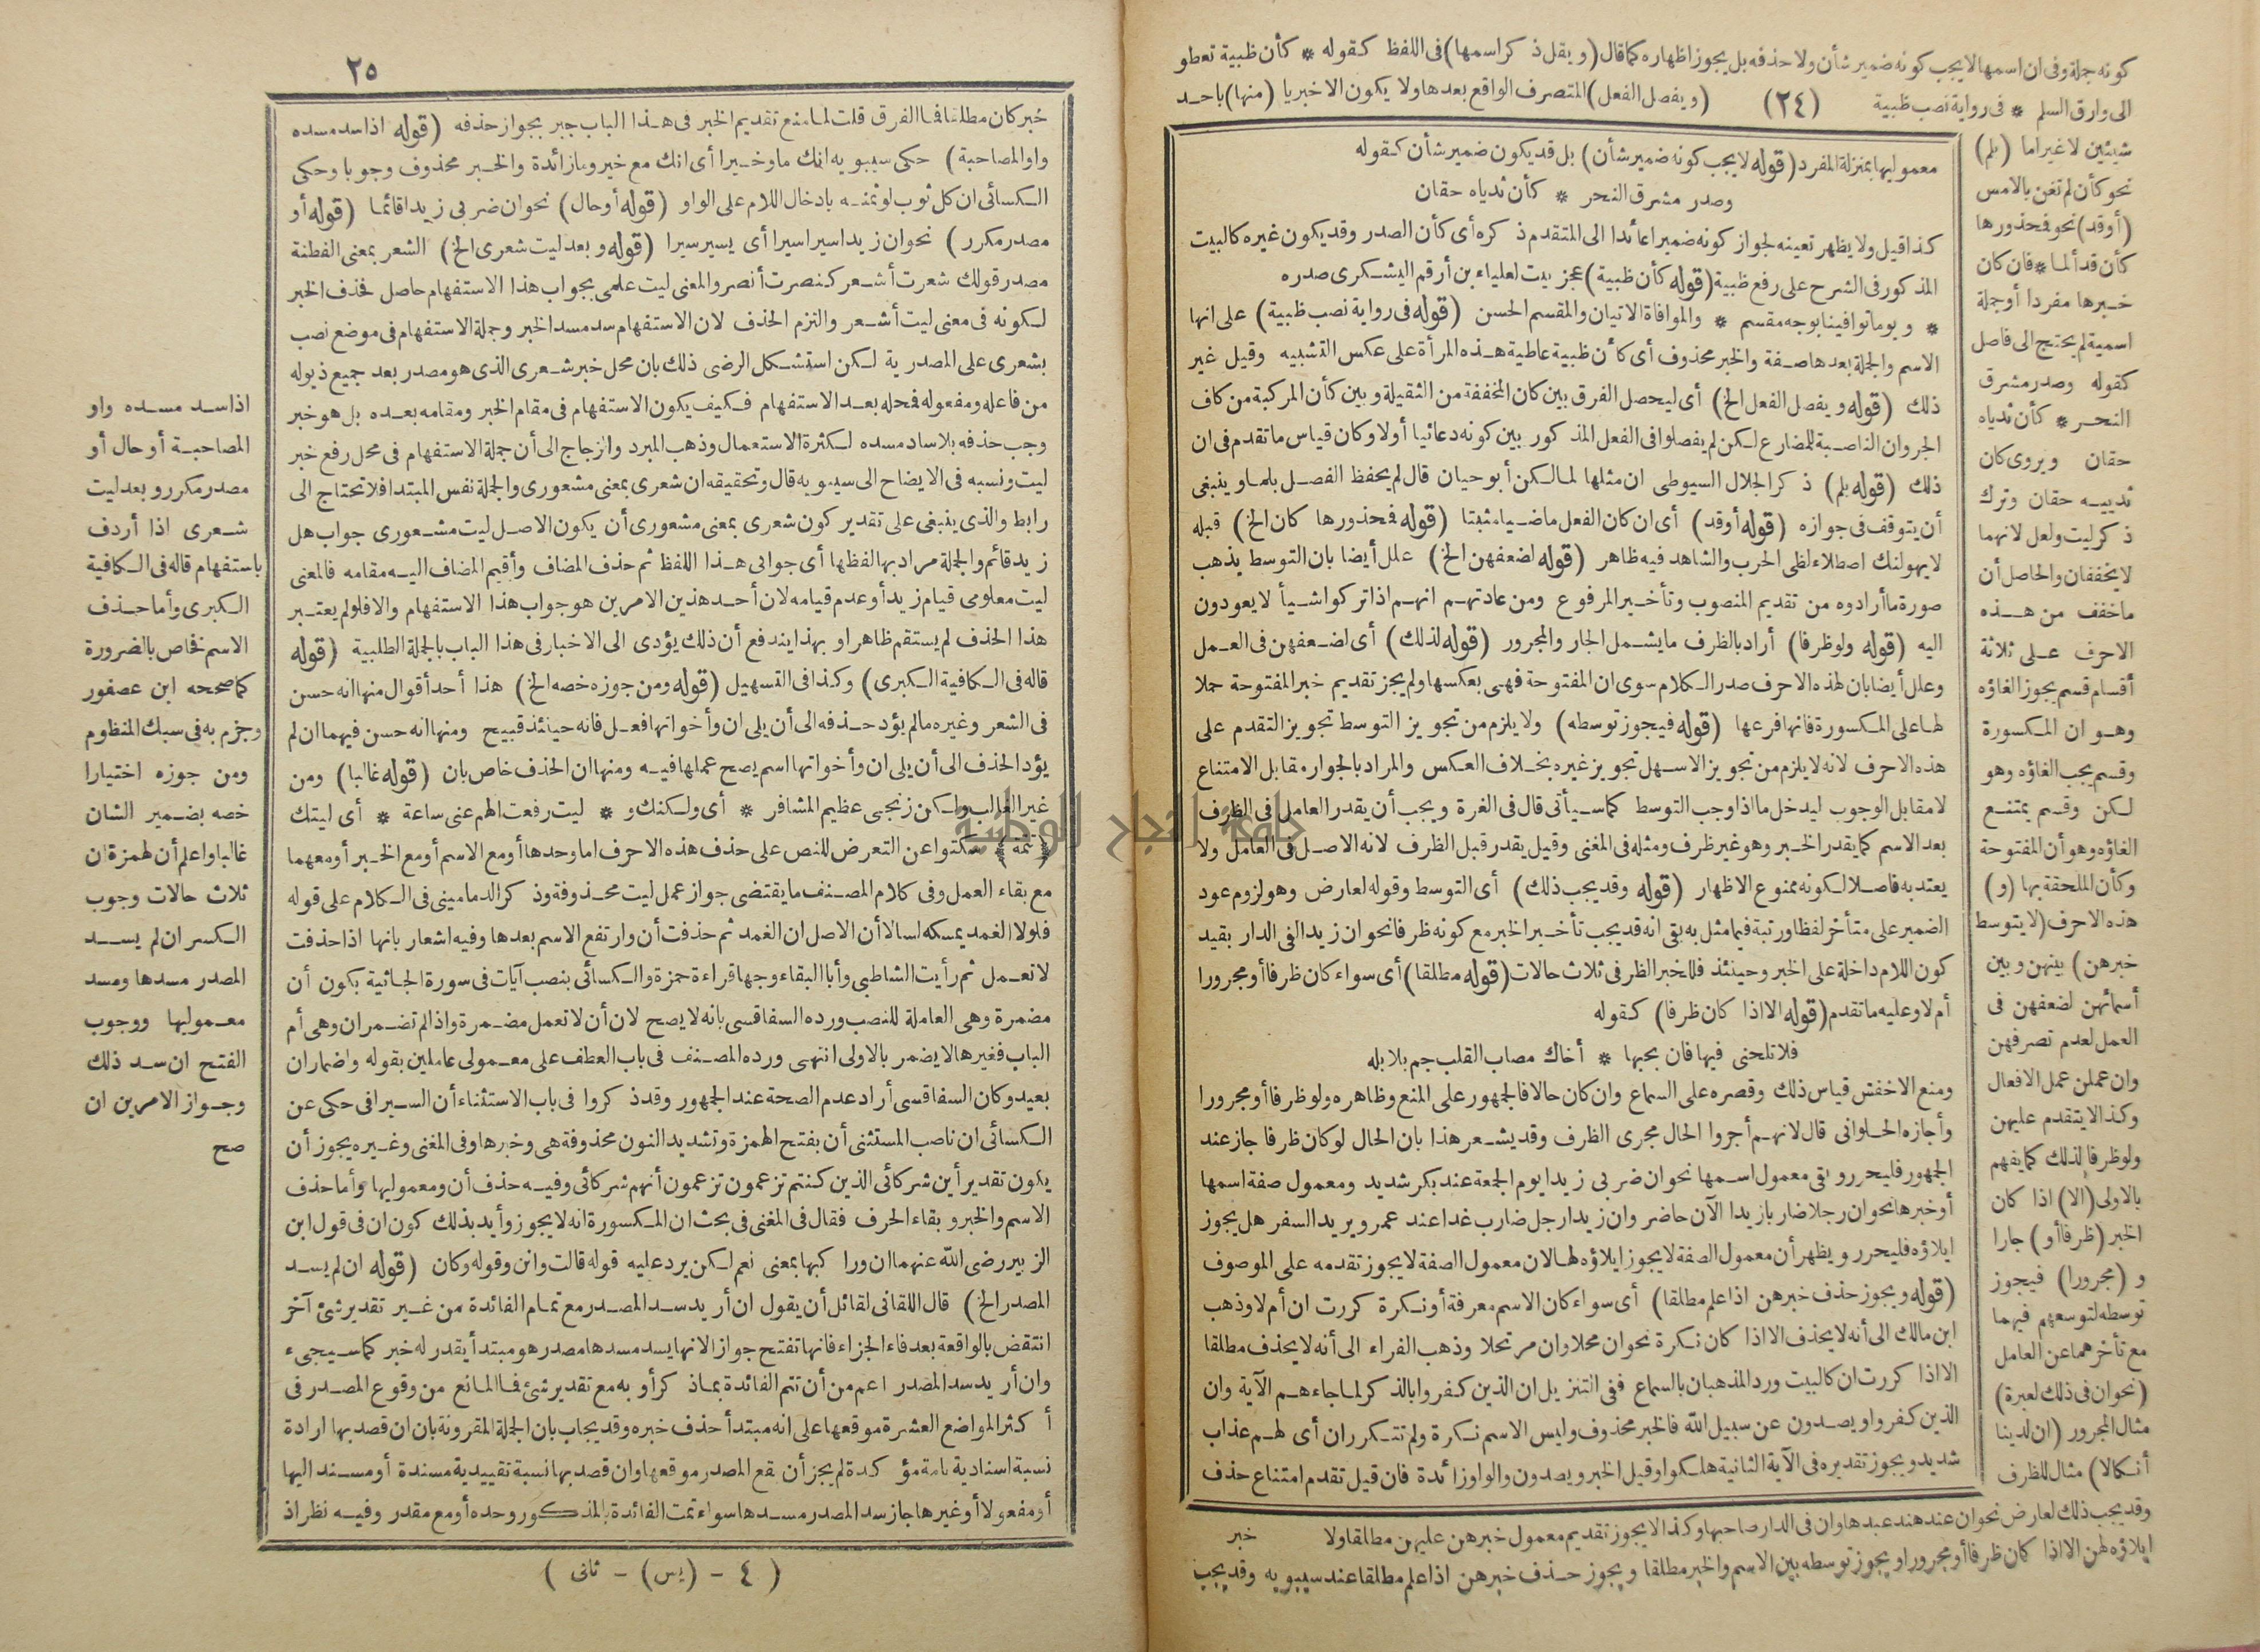 كونه جملة وفى ان اسمها لا يجب كونه ضمير شأن ولا حذفه بل يجوز اظهاره كما قال (و يقل ذكر اسمها) فى اللفظ كقوله * كأن ظبية تعطو
الى وارق السلم * فى رواية نصب ظبية (٢٤) (ويفصل الفعل) المتصرف الواقع بعدها ولا يكون الا خبريا (منها) باحد
شيئين لا غير اما (بلم)
نحو كأن لم تغن بالامس
(أو قد) نحو فحذورها
كأن قد ألما * فان كان
خبرها مفردا أو جملة
اسمية لم يحتج الى فاصل
كقوله وصدر مشرق
النحر * كأن ثدياه
حقان ويروى كان
ثدييه حقان وترك
ذكر ليت ولعل لانهما
لا يخففان والحاصل أن
ما خفف من هذه
الاحرف على ثلاثة
أقسام قسم يجوز الغاؤه
وهو ان المكسورة
وقسم يجب الغاؤه وهو
لكن وقسم يمتنع
الغاؤه وهو أن المفتوحة
وكأن الملحقة بها (و)
هذه الاحرف (لا يتوسط
خبرهن) بينهن وبين
أسمائهن لضعفهن فى
العمل لعدم تصرفهن
وان عملن عمل الافعال
وكذا لا يتقدم عليهن
ولو ظرفا لذلك كما يفهم
بالاولى (الا) اذا كان
الخبر (ظرفا أو) جارا
و (مجرورا) فيجوز
توسطه لتوسعهم فيهما
مع تأخرهما عن العامل
(نحو ان فى ذلك لعبرة)
مثال المجرور (ان لدينا
أنكالا) مثال للظرف
معموليها بمنزلة المفرد (قوله لا يجب كونه ضمير شأن) بل قد يكون ضمير شأن كقوله
وصدر مشرق النحر * كأن ثدياه حقان
كذا قيل ولا يظهر تعينه لجواز كونه ضميرا عائدا الى المتقدم ذكره أى كأن الصدر وقد يكون غيره كالبيت
المذكور فى الشرح على رفع ظبية (قوله كأن ظبية) عجز بيت لعلباء بن أرقم اليشكرى صدره
* ويوما توافينا بوجه مقسم * والموافاة الاتيان والمقسم الحسن (قوله فى رواية نصب ظبية) على انها
الاسم والجملة بعدها صفة والخبر محذوف أى كأن ظبية عاطية هذه المرأة على عكس التشبيه وقيل غير
ذلك (قوله ويفصل الفعل الخ) أى ليحصل الفرق بين كان المخففة من الثقيلة وبين كأن المركبة من كاف
الجر وان الناصبة للمضارع لكن لم يفصلوا فى الفعل المذكور بين كونه دعائيا أولا وكان قياس ما تقدم فى ان
ذلك (قوله بلم) ذكر الجلال السيوطى ان مثلها لما لكن أبو حيان قال لم يحفظ الفصل بلما وينبغى
أن يتوقف فى جوازه (قوله أو قد) أى ان كان الفعل ماضيا مثبتا (قوله فحذورها كان الخ) قبله
لا يهولنك اصطلاء لظى الحرب والشاهد فيه ظاهر (قوله لضعفهن الخ) علل أيضا بان التوسط يذهب
صورة ما أرادوه من تقديم المنصوب وتأخير المرفوع ومن عادتهم انهم اذا تركوا شيأ لا يعودون
اليه (قوله ولو ظرفا) أراد بالظرف ما يشمل الجار والمجرور (قوله لذلك) أى لضعفهن فى العمل
وعلل أيضا بان لهذه الاحرف صدر الكلام سوى ان المفتوحة فهى بعكسها ولم يجز تقديم خبر المفتوحة حملا
لها على المكسورة فانها فرعها (قوله فيجوز توسطه) ولا يلزم من تجويز التوسط تجويز التقدم على
هذه الاحرف لانه لا يلزم من تجويز الاسهل تجويز غيره بخلاف العكس والمراد بالجواز مقابل الامتناع
لا مقابل الوجوب ليدخل ما اذا وجب التوسط كما سيأتى قال فى الغرة ويجب أن يقدر العامل فى الظرف
بعد الاسم كما يقدر الخبر وهو غير ظرف ومثله فى المغنى وقيل يقدر قبل الظرف لانه الاصل فى العامل ولا
يعتد به فاصلا لكونه ممنوع الاظهار (قوله وقد يجب ذلك) أى التوسط وقوله لعارض وهو لزوم عود
الضمير على متأخر لفظا ورتبة فيما مثل به بقى انه قد يجب تأخير الخبر مع كونه ظرفا نحو ان زيدا لفى الدار بقيد
كون اللام داخلة على الخبر وحينئذ فللخبر الظرفى ثلاث حالات (قوله مطلقا) أى سواء كان ظرفا أو مجرورا
أم لا وعليه ما تقدم (قوله الا اذا كان ظرفا) كقوله
فلا تلحنى فيها فان بحبها * أخاك مصاب القلب جم بلابله
ومنع الاخفش قياس ذلك وقصره على السماع وان كان حالا فالجمهور على المنع وظاهره ولو ظرفا أو مجرورا
وأجازه الحلوانى قال لانهم أجروا الحال مجرى الظرف وقد يشعر هذا بان الحال لو كان ظرفا جاز عند
الجمهور فليحرر وبقى معمول اسمها نحو ان ضربى زيدا يوم الجمعة عند بكر شديد ومعمول صفة اسمها
أو خبرها نحو ان رجلا ضاربا زيدا الآن حاضر وان زيدا رجل ضارب غدا عند عمرو يريد السفر هل يجوز
ايلاؤه فليحرر ويظهر أن معمول الصفة لا يجوز ايلاؤه لها لان معمول الصفة لا يجوز تقدمه على الموصوف
(قوله ويجوز حذف خبرهن اذا علم مطلقا) أى سواء كان الاسم معرفة أو نكرة كررت ان أم لا وذهب
ابن مالك الى أنه لا يحذف الا اذا كان نكرة نحو ان محلا وان مرتحلا وذهب الفراء الى أنه لا يحذف مطلقا
الا اذا كررت ان كالبيت ورد المذهبان بالسماع ففى التنزيل ان الذين كفروا بالذكر لما جاءهم الآية وان
الذين كفروا ويصدون عن سبيل الله فالخبر محذوف وليس الاسم نكرة ولم تتكرر ان أى لهم عذاب
شديد ويجوز تقديره فى الآية الثانية هلكوا وقيل الخبر ويصدون والواو زائدة فان قيل تقدم امتناع حذف
وقد يجب ذلك لعارض نحو ان عند هند عبدها وان فى الدار صاحبها وكذا لا يجوز تقديم معمول خبرهن عليهن مطلقا ولا خبر
ايلاؤه لهن الا اذا كان ظرفا أو مجرورا ويجوز توسطه بين الاسم والخبر مطلقا ويجوز حذف خبرهن اذا علم مطلقا عند سيبويه وقد يجب
٢٥
خبر كان مطلقا فما الفرق قلت لما منع تقديم الخبر فى هذا الباب جبر بجواز حذفه (قوله اذا سد مسده
واو المصاحبة) حكى سيبويه انك ما وخيرا أى انك مع خير وما زائدة والخبر محذوف وجوبا وحكى
الكسائى ان كل ثوب لو ثمنه بادخال اللام على الواو (قوله أو حال) نحو ان ضربى زيدا قائما (قوله أو
مصدر مكرر) نحو ان زيدا سيرا سيرا أى يسير سيرا (قوله وبعد ليت شعرى الخ) الشعر بمعنى الفطنة
مصدر قولك شعرت أشعر كنصرت أنصر والمعنى ليت علمى بجواب هذا الاستفهام حاصل فحذف الخبر
لكونه فى معنى ليت أشعر والتزم الحذف لان الاستفهام سد مسد الخبر وجملة الاستفهام فى موضع نصب
بشعرى على المصدرية لكن استشكل الرضى ذلك بان محل خبر شعرى الذى هو مصدر بعد جميع ذيوله
من فاعله ومفعوله فمحله بعد الاستفهام فكيف يكون الاستفهام فى مقام الخبر ومقامه بعده بل هو خبر
وجب حذفه بلا ساد مسده لكثرة الاستعمال وذهب المبرد والزجاج الى أن جملة الاستفهام فى محل رفع خبر
ليت ونسبه فى الايضاح الى سيبويه قال وتحقيقه ان شعرى بمعنى مشعورى والجملة نفس المبتدا فلا تحتاج الى
رابط والذى ينبغى على تقدير كون شعرى بمعنى مشعورى أن يكون الاصل ليت مشعورى جواب هل
زيد قائم والجملة مراد بها لفظها أى جوابى هذا اللفظ ثم حذف المضاف وأقيم المضاف اليه مقامه فالمعنى
ليت معلومى قيام زيد أو عدم قيامه لان أحد هذين الامرين هو جواب هذا الاستفهام والا فلو لم يعتبر
هذا الحذف لم يستقم ظاهرا وبهذا يندفع أن ذلك يؤدى الى الاخبار فى هذا الباب بالجملة الطلبية (قوله
قاله فى الكافية الكبرى) وكذا فى التسهيل (قوله ومن جوزه خصه الخ) هذا أحد أقوال منها انه حسن
فى الشعر وغيره ما لم يؤد حذفه الى أن يلى ان وأخواتها فعل فانه حينئذ قبيح ومنها انه حسن فيهما ان لم
يؤد الحذف الى أن يلى ان وأخواتها اسم يصح عملها فيه ومنها ان الحذف خاص بان (قوله غالبا) ومن
غير الغالب ولكن زنجى عظيم المشافر * أى ولكنك و * ليت رفعت الهم عنى ساعة * أى ليتك
﴿تتمة﴾ سكتوا عن التعرض للنص على حذف هذه الاحرف اما وحدها أو مع الاسم أو مع الخبر أو معهما
مع بقاء العمل وفى كلام المصنف ما يقتضى جواز عمل ليت محذوفة وذكر الدمامينى فى الكلام على قوله
فلولا الغمد يمسكه لسالا أن الاصل ان الغمد ثم حذفت أن وارتفع الاسم بعدها وفيه اشعار بانها اذا حذفت
لا تعمل ثم رأيت الشاطبي وأبا البقاء وجها قراءة حمزة والكسائى بنصب آيات فى سورة الجاثية بكون أن
مضمرة وهى العاملة للنصب ورده السفاقسى بانه لا يصح لان أن لا تعمل مضمرة واذا لم تضمر ان وهى أم
الباب فغيرها لا يضمر بالاولى انتهى ورده المصنف فى باب العطف على معمولى عاملين بقوله واضمار ان
بعيد وكان السفاقسى أراد عدم الصحة عند الجمهور وقد ذكروا فى باب الاستثناء أن السيرافى حكى عن
الكسائى ان ناصب المستثنى أن بفتح الهمزة وتشديد النون محذوفة هى وخبرها وفى المغنى وغيره يجوز أن
يكون تقدير أين شركائى الذين كنتم تزعمون تزعمون أنهم شركائى وفيه حذف أن ومعموليها وأما حذف
الاسم والخبر وبقاء الحرف فقال فى المغنى فى بحث ان المكسورة انه لا يجوز وأيد بذلك كون ان فى قول ابن
الزبير رضى الله عنهما ان وراكبها بمعنى نعم لكن يرد عليه قوله قالت وانن وقوله وكان (قوله ان لم يسد
المصدر الخ) قال اللقانى لقائل أن يقول ان أريد سد المصدر مع تمام الفائدة من غير تقدير شئ آخر
انتقض بالواقعة بعد فاء الجزاء فانها تفتح جوازا لانها يسد مسدها مصدر هو مبتدأ يقدر له خبر كما سيجىء
وان أريد سد المصدر اعم من أن تتم الفائدة بما ذكر أو به مع تقدير شئ فما المانع من وقوع المصدر فى
أكثر المواضع العشرة موقعها على انه مبتدأ حذف خبره وقد يجاب بان الجملة المقرونة بان ان قصد بها ارادة
نسبة اسنادية تامة مؤكدة لم يجز أن يقع المصدر موقعها وان قصد بها نسبة تقييدية مسندة أو مسند اليها
أو مفعولا أو غيرها جاز سد المصدر مسدها سواء تمت الفائدة بالمذكور وحده أو مع مقدر وفيه نظر اذ
اذا سد مسده واو
المصاحبة أو حال أو
مصدر مكرر وبعد ليت
شعرى اذا أردف
باستفهام قاله فى الكافية
الكبرى وأما حذف
الاسم فخاص بالضرورة
كما صححه ابن عصفور
وجزم به فى سبك المنظوم
ومن جوزه اختيارا
خصه بضمير الشان
غالبا واعلم أن لهمزة ان
ثلاث حالات وجوب
الكسر ان لم يسد
المصدر مسدها ومسد
معموليها ووجوب
الفتح ان سد ذلك
وجواز الامرين ان
صح
(٤ - (يس) - ثانى)
جامعة النجاح الوطنية